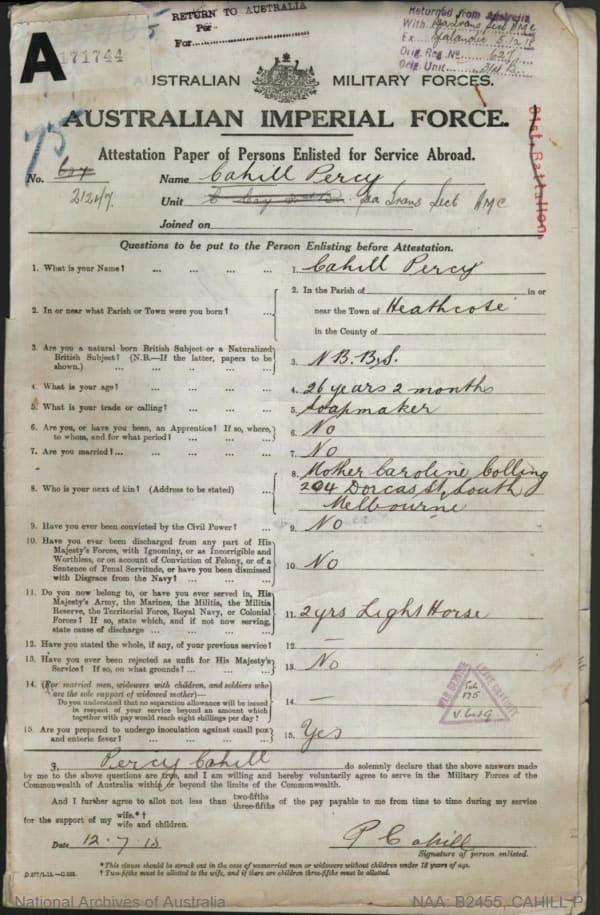 RETURN TO AUSTRALIA
Per
For
Returned from Australia
With
Ex
Orig. Reg. No. 627
Orig. Unit
A
171744
75
AUSTRALIAN MILITARY FORCES.
AUSTRALIAN IMPERIAL FORCE.
31st. Battalion.
Attestation Paper of Persons Enlisted for Service Abroad.
No. Name Cahill Percy
Unit Sea Trans Sect
Joined on
Questions to be put to the Person Enlisting before Attestation.
1. What is your Name? ... ... ... ... 1. Cahill Percy
2. In or near what Parish or Town were you born? ... 2. In the Parish of in or
near the Town of Heathcote
in the County of
3. Are you a natural born British Subject or a Naturalized
British Subject? (N.B.—If the latter, papers to be
shown.) ... ... ... ... 3. N B. B. S.
4. What is your age? ... ... ... ... 4. 26 years 2 months
5. What is your trade or calling? ... ... ... 5. Soapmaker
6. Are you, or have you been, an Apprentice? If so, where,
to whom, and for what period? ... ... ... 6. No
7. Are you married? ... ... ... ... 7. No
8. Who is your next of kin? (Address to be stated) ... 8. Mother Caroline Colling
204 Dorcas St, South
Melbourne
9. Have you ever been convicted by the Civil Power? ... 9. No
10. Have you ever been discharged from any part of His
Majesty's Forces, with Ignominy, or as Incorrigible and
Worthless, or on account of Conviction of Felony, or of a
Sentence of Penal Servitude, or have you been dismissed
with Disgrace from the Navy? ... ... ... 10. No
11. Do you now belong to, or have you ever served in, His
Majesty's Army, the Marines, the Militia, the Militia
Reserve, the Territorial Force, Royal Navy, or Colonial
Forces? If so, state which, and if not now serving,
state cause of discharge ... ... ... 11. 2 yrs Light Horse
12. Have you stated the whole, if any, of your previous service? 12. —
13. Have you ever been rejected as unfit for His Majesty's
Service? If so, on what grounds? ... ... 13. No
14. (For married men, widowers with children, and soldiers who
are the sole support of widowed mother)—
Do you understand that no separation allowance will be issued
in respect of your service beyond an amount which
together with pay would reach eight shillings per day? 14. —
WAR SERVICE LEAVE GRATUITY
175
15. Are you prepared to undergo inoculation against small pox
and enteric fever? ... ... ... ... 15. Yes
I, Percy Cahill do solemnly declare that the above answers made
by me to the above questions are true, and I am willing and hereby voluntarily agree to serve in the Military Forces of the
Commonwealth of Australia within or beyond the limits of the Commonwealth.
And I further agree to allot not less than two-fifths
three-fifths of the pay payable to me from time to time during my service
for the support of my wife.*†
wife and children.
Date 12.7.15 P Cahill
Signature of person enlisted.
* This clause should be struck out in the case of unmarried men or widowers without children under 18 years of age.
† Two-fifths must be allotted to the wife, and if there are children three-fifths must be allotted.
National Archives of Australia NAA: B2455, CAHILL P